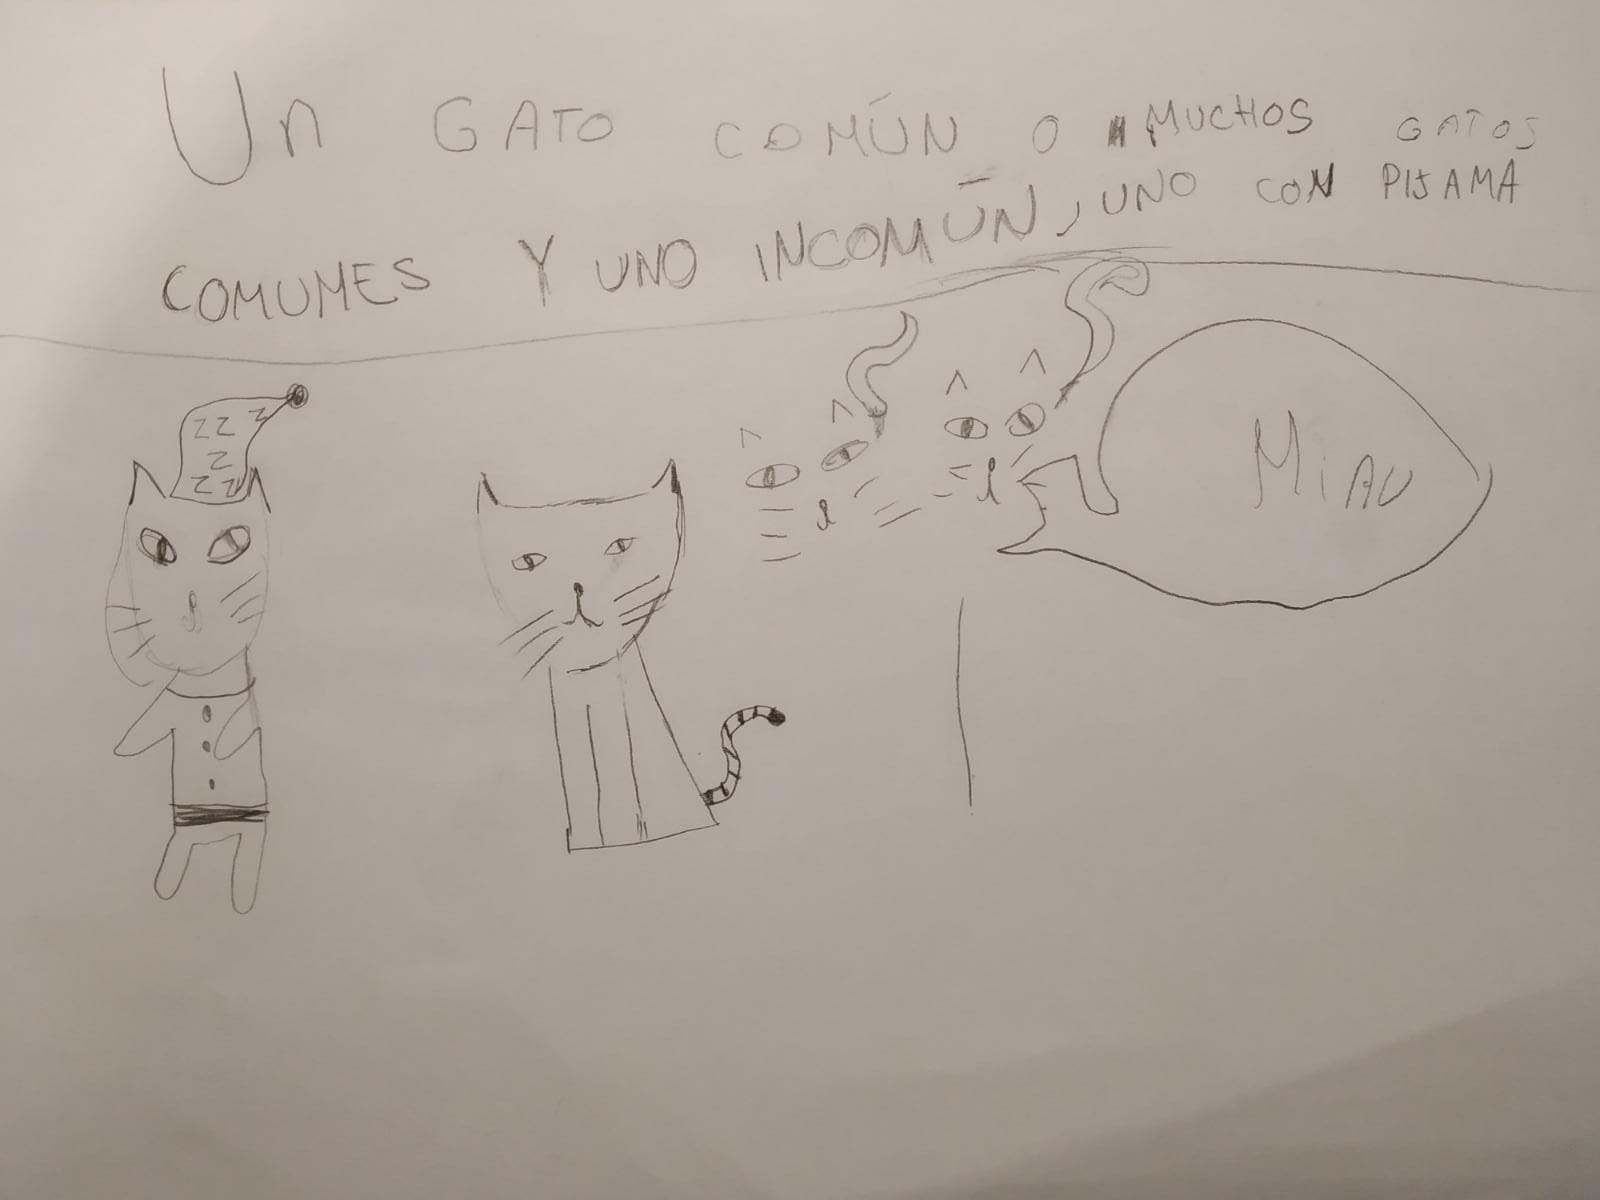 Un GATO COMÚN O MUCHOS GATOS
COMUMES Y UNO INCOMÚN, UNO CON PIJAMA
ZZ Z
Z
ZZ
MiAU